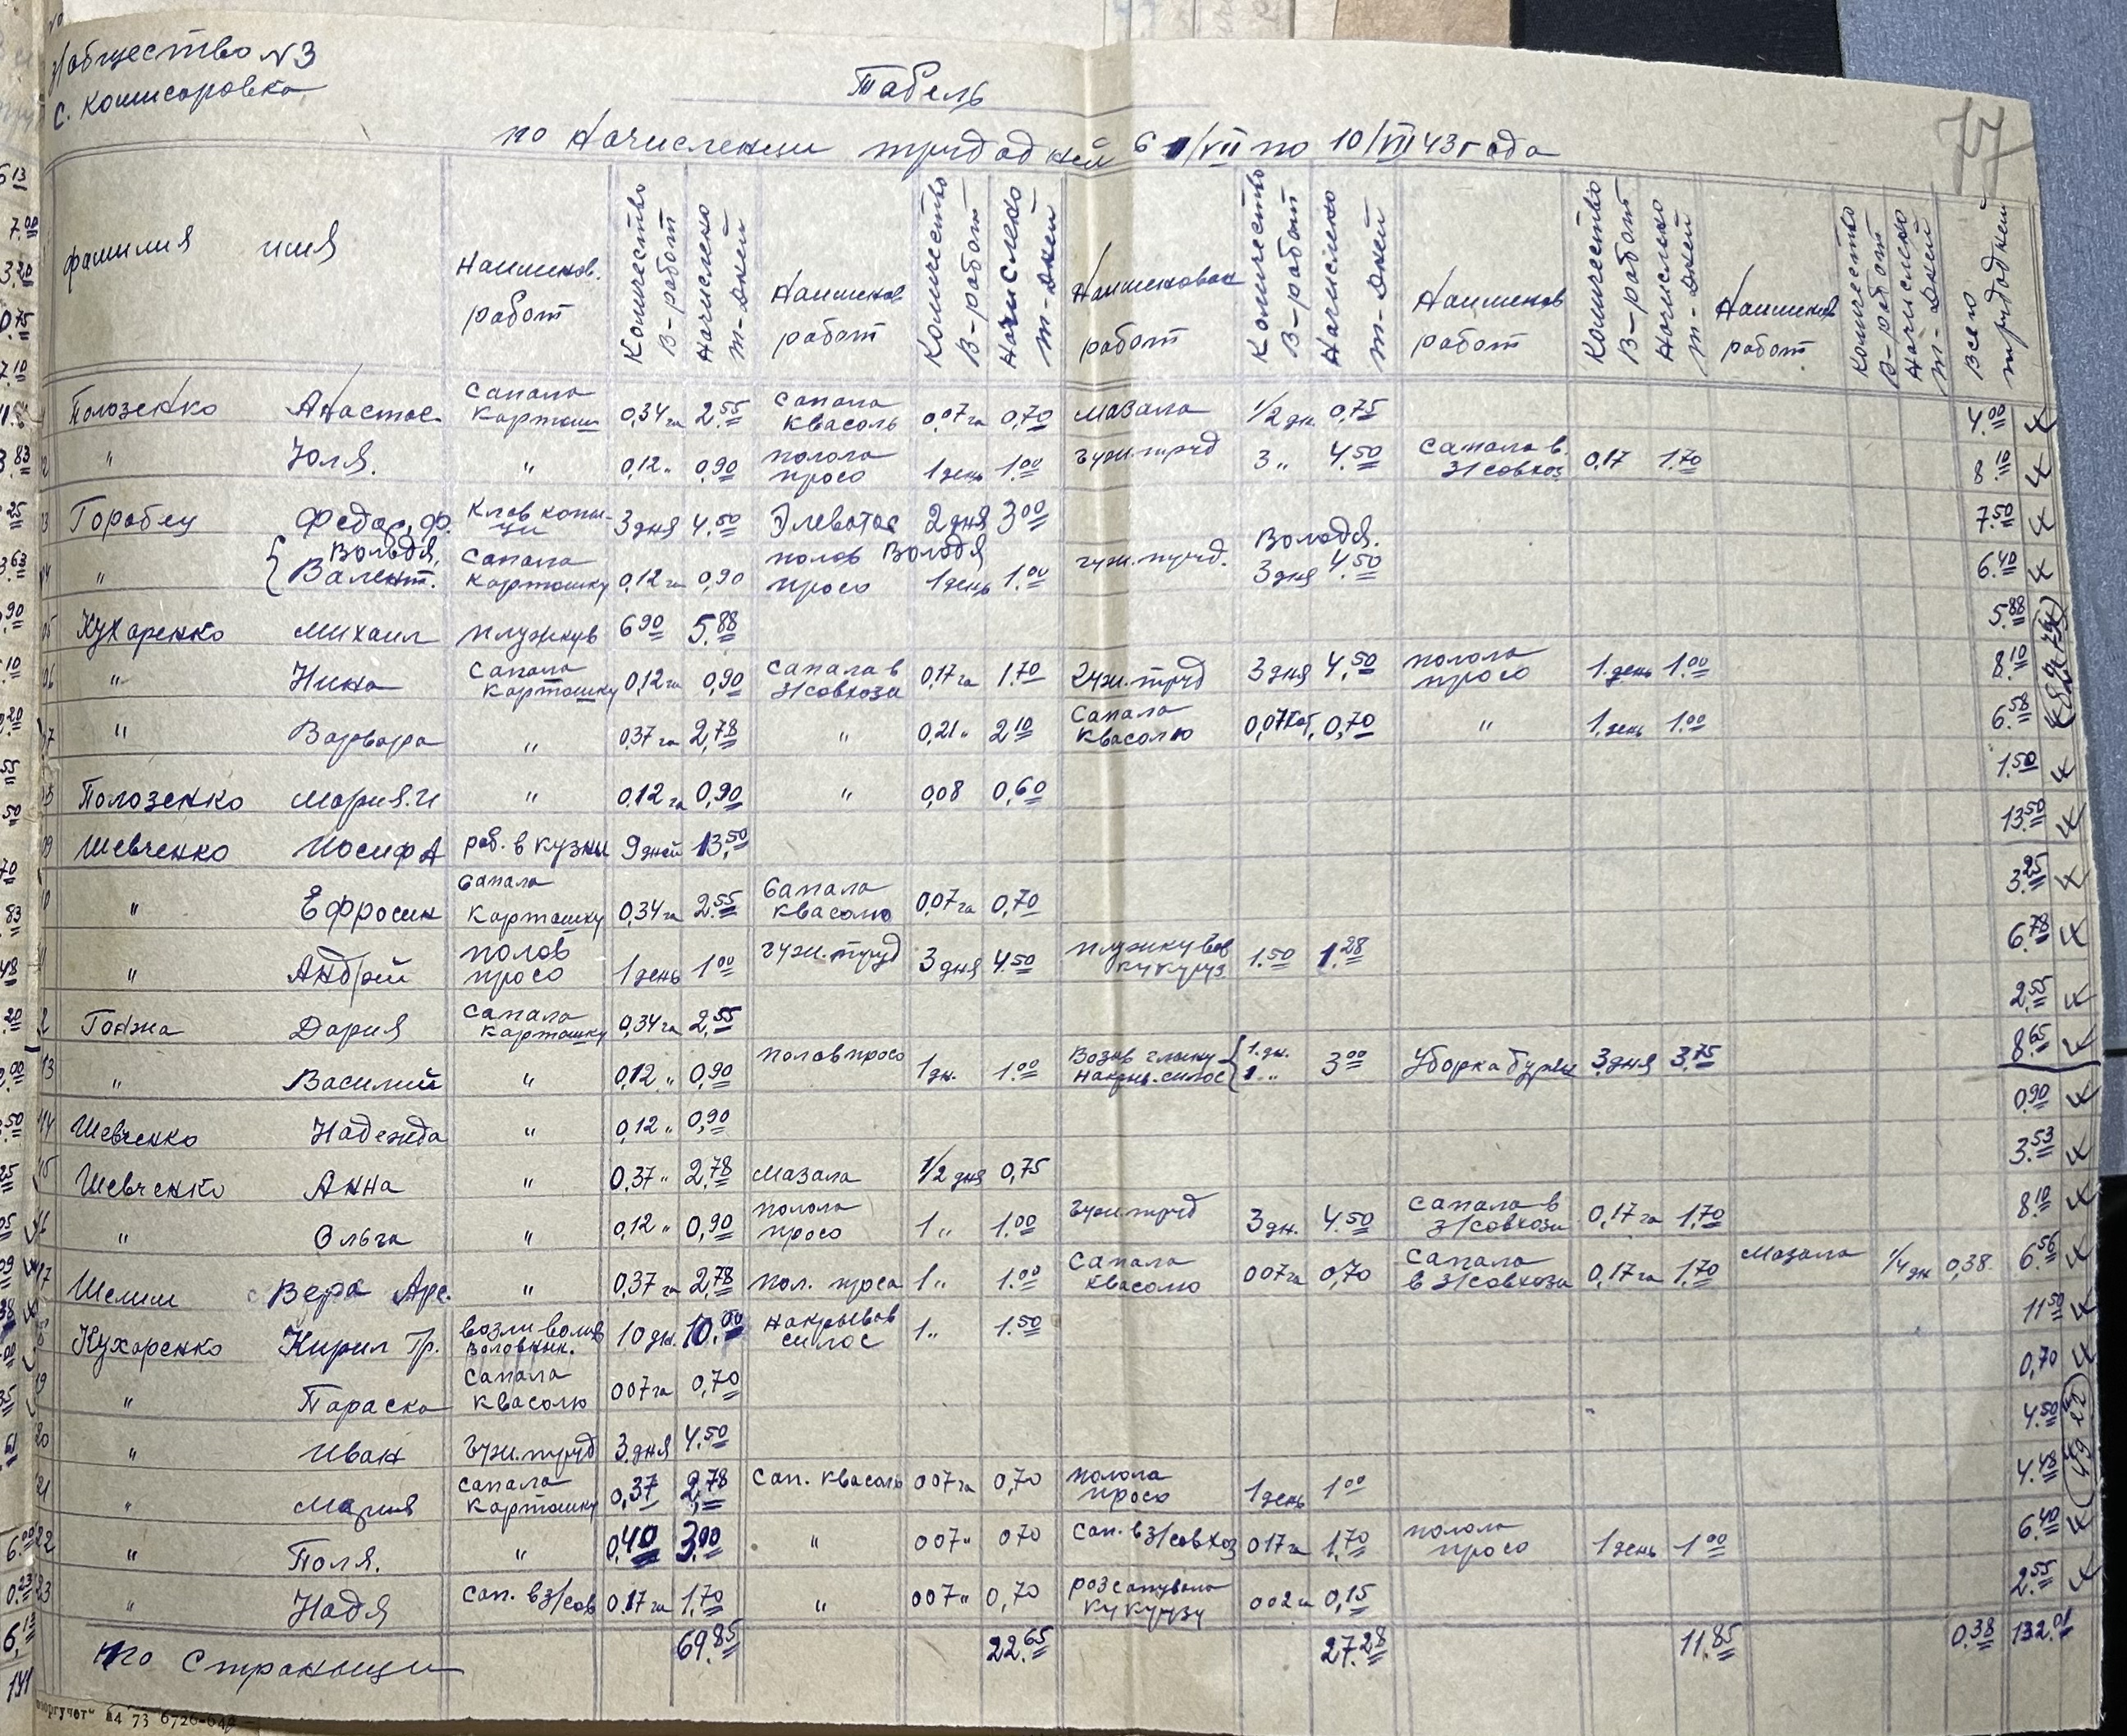 з/общество №3
с. Комисаровка
77
Табель
по начислении трудодней с 1/VII по 10/VII 43 года
фамилия имя Наименов. работ Количество в-работ Начислено т-дней Наименов работ Количество в-работ Начислено т-дней Наименован работ Количество в-работ Начислено т-дней Наименов работ Количество в-работ Начислено т-дней Наименов работ Количество в-работ Начислено т-дней Всего трудодней
Полозенко Анастас сапала картош 0,34 га 2.55 сапала квасоль 0,07 га 0,70 мазала 1/2 дн. 0,75 4.00
2 " Юля. " 0,12 " 0,90 полола просо 1 день 1.00 гуж. труд 3 " 4.50 сапала в з/совхоз 0,17 1.70 8.10
3 Горобец Федос. Ф. 3 дня 4.50 2 дня 3.00 7.50
4 " { Володя, Валент. сапала картошку 0,12 га 0,90 полов Володя просо 1 день 1.00 гуж. труд. Володя. 3 дня 4.50 6.40
05 Кухаренко Михаил плужкув 6.90 5.88 5.88
06 " Нина сапала картошку 0,12 га 0,90 сапала в з/совхози 0,17 га 1.70 гуж. труд 3 дня 4.50 полола просо 1 день 1.00 8.10
07 " Варвара " 0,37 га 2,78 " 0,21 " 2.10 сапала квасолю 0,07 0,70 " 1 день 1.00 6.58
08 Полозенко Мария. И " 0,12 га 0,90 " 0,08 0,60 1.50
09 Шевченко Иосиф А раб. в кузни 9 дней 13.50 13.50
10 " Ефросин сапала картошку 0,34 га 2.55 сапала квасолю 0,07 га 0,70 3.25
11 " Андрей полов просо 1 день 1.00 гуж. труд 3 дня 4.50 плужкував кукуруз 1.50 1.28 6.78
12 Гонжа Дария сапала картошку 0,34 га 2.55 2.55
13 " Василий " 0,12 " 0,90 полов просо 1 дн. 1.00 Возив глину накрыв. силос { 1. дн. 1. " 3.00 Уборка 3 дня 3.75 8.65
14 Шевченко Надежда " 0,12 " 0,90 0.90
15 Шевченко Анна " 0,37 " 2,78 мазала 1/2 дня 0,75 3.53
16 " Ольга " 0,12 " 0,90 полола просо 1 " 1.00 гуж. труд 3 дн. 4.50 сапала в з/совхози 0,17 га 1,70 8.10
17 Вера Арс. " 0,37 га 2,78 пол. проса 1 " 1.00 сапала квасолю 007 га 0,70 сапала в з/совхози 0,17 га 1,70 мазала 1/4 дн 0,38 6.56
18 Кухаренко Кирил Гр. возли волив воловник. 10 дн. 10.00 накрывав силос 1 " 1.50 11.50
19 " Параска сапала квасолю 007 га 0,70 0,70
20 " Иван гуж. труд 3 дня 4.50 4.50
21 " Мария сапала картошку 0,37 2,78 сап. квасоль 007 га 0,70 полола просо 1 день 1.00 4.48
22 " Поля. " 0,40 3.00 " 007 " 070 сап. в з/совхоз 017 га 1,70 полола просо 1 день 1.00 6.40
23 " Надя сап. в з/сов 0.17 га 1,70 " 007 " 0,70 розсапувала кукурузу 002 га 0,15 2.55
по Страници 69.85 22.65 27.28 11.85 0.38 132.01